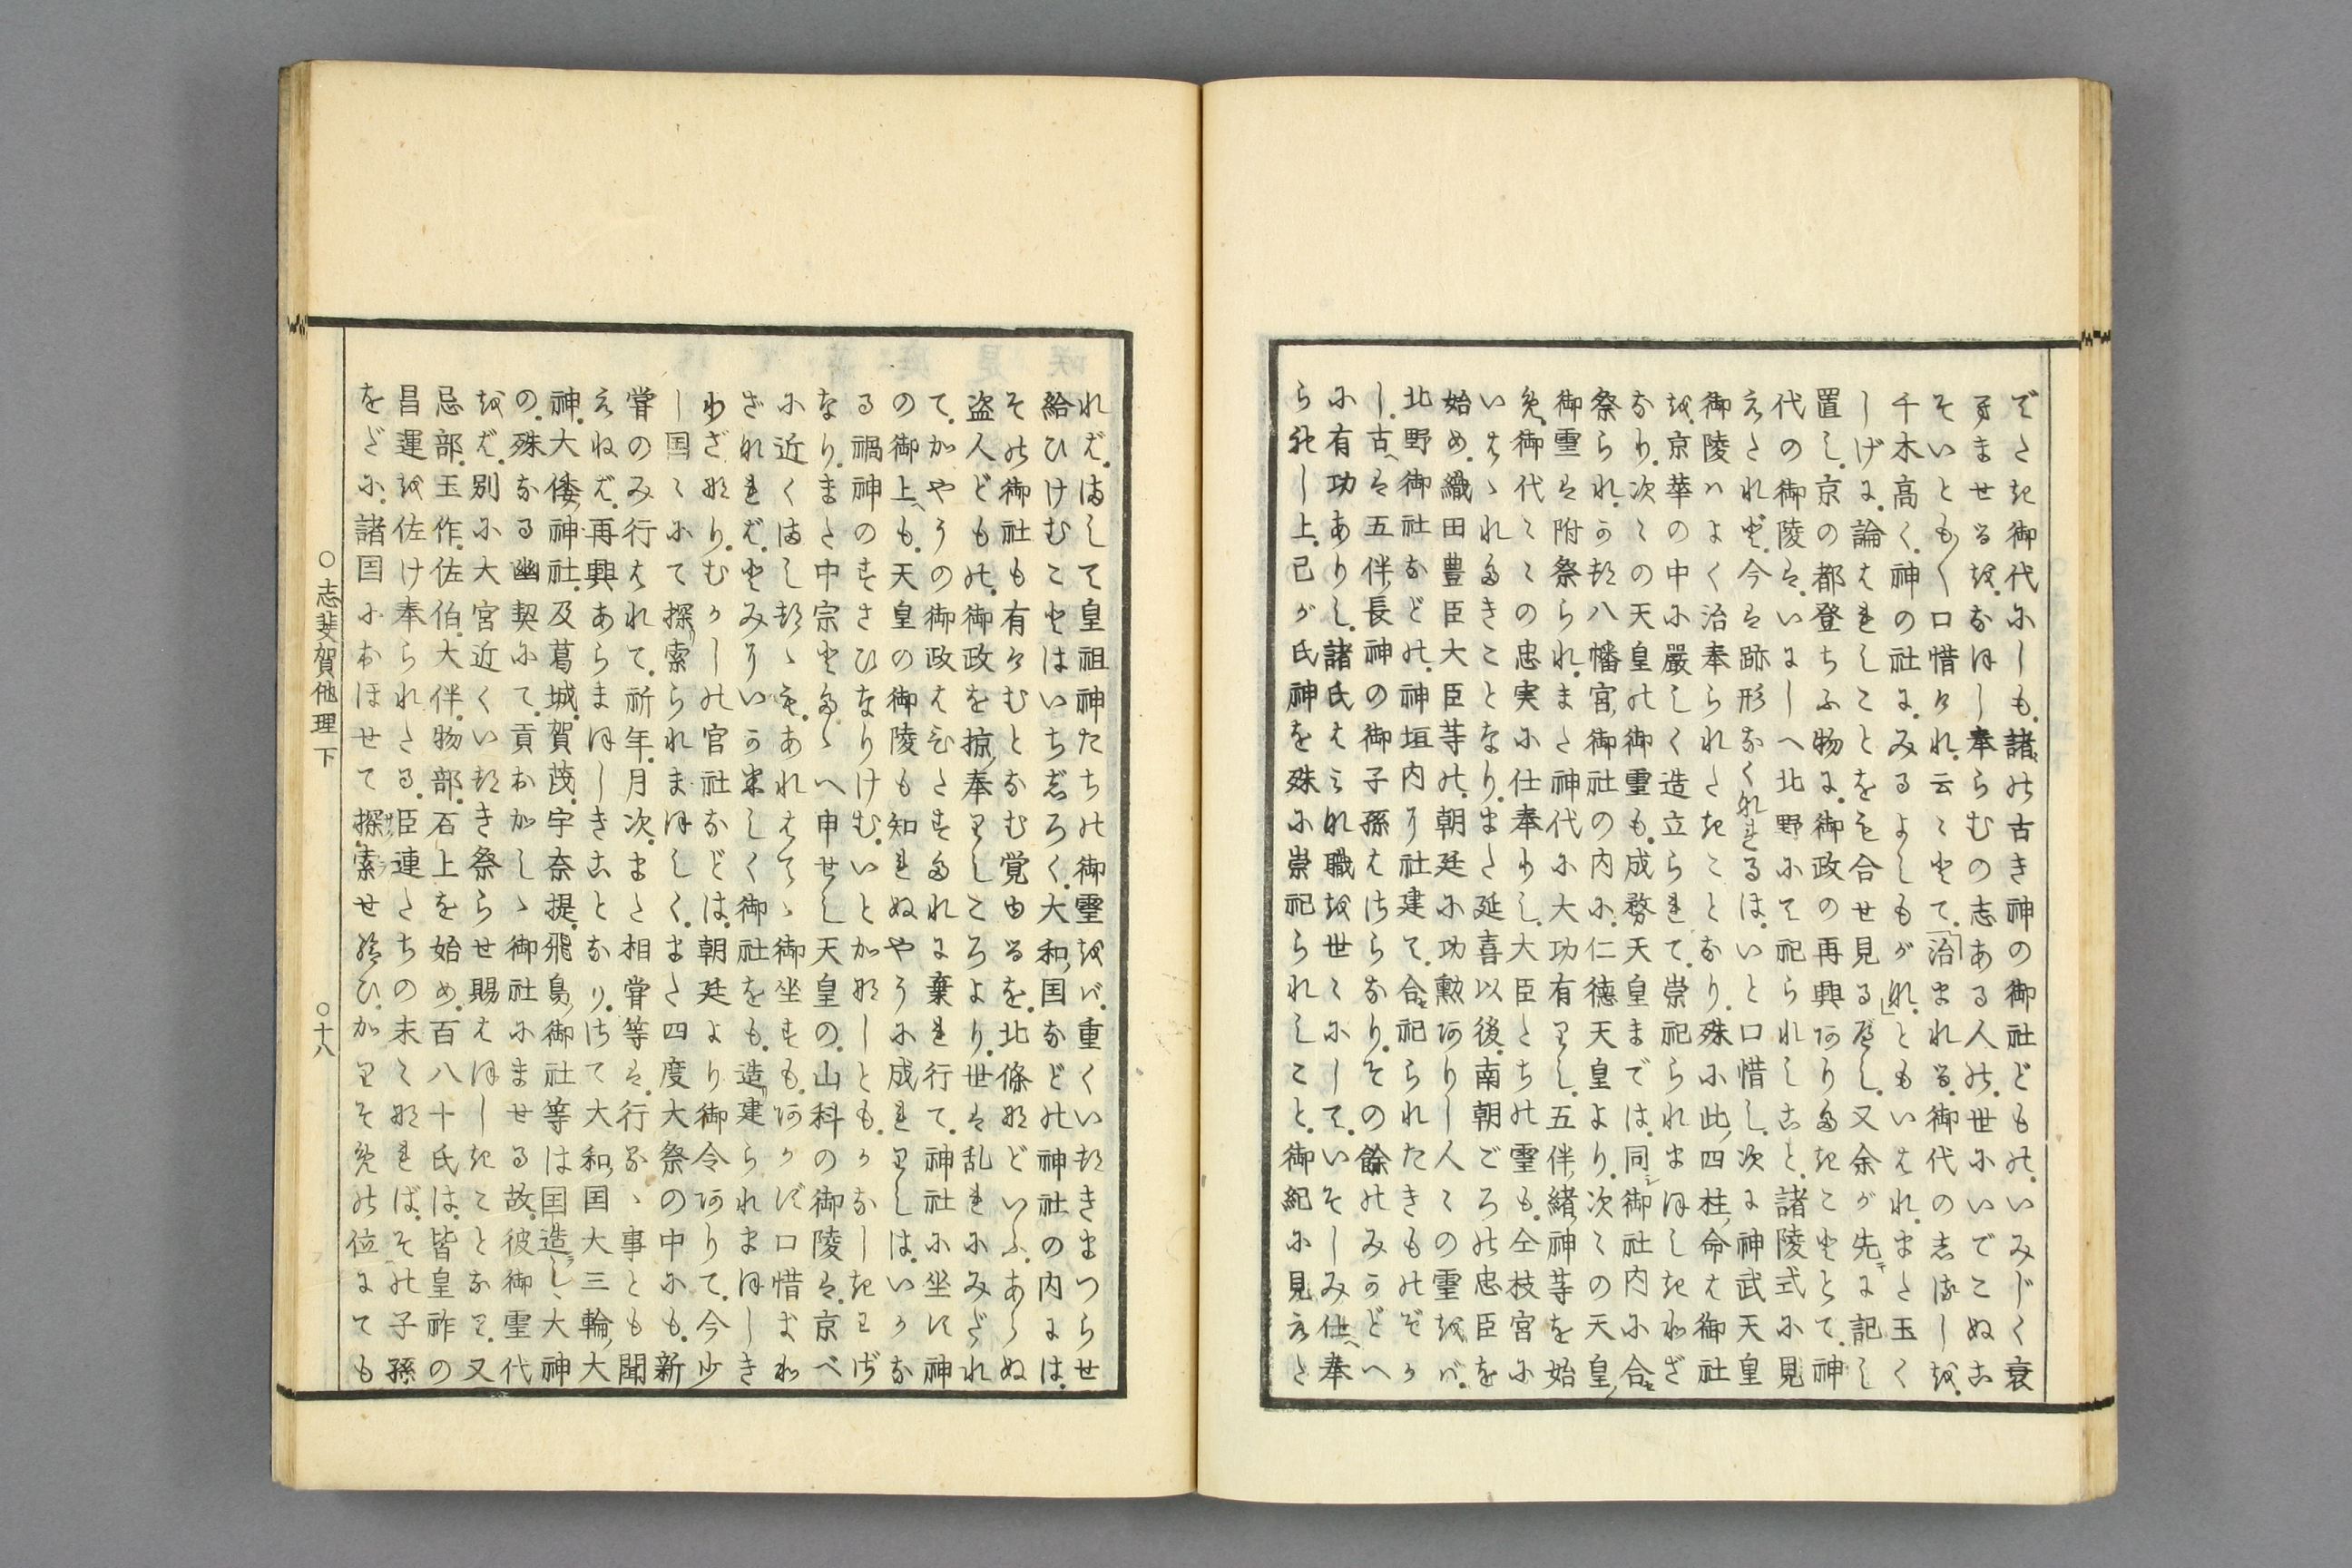 でたき御代にしも諸の古き神の御社どもの。いみじく衰
へませるを。なほし奉らむの志ある人の。世にいでこぬこ
そいとも〳〵口惜けれ。云々とて。「治まれる。御代の志るしを。
千木高く。神の社に。みるよしもがな」ともいはれ。また玉く
しげに。論はれしことをも合せ見るべし。又余が先に記し
置し。京の都登ちふ物に。御政の再興ありたきことらて。神
代の御陵は。いにしへ北野にて祀られしこと。諸陵式に見
えたれど。今は跡形なくなれるは。いと口惜し。次に神武天皇
御陵ハよく治奉られたきことなり。殊に此四柱命は御社
を。京華の中に嚴しく造立られて。崇祀られまほしきわざ
なり。次々の天皇の御霊も。成務天皇までは。同御社内に合
祭られ。うち八幡宮。御社の内に。仁德天皇より。次々の天皇
御霊は附祭られ。また神代に大功有りし。五伴緒神等を始
め。御代々々の忠実に仕奉りし。大臣たちの霊も仝枝宮に
いはゝれたきことなり。また延喜以後。南朝ごろの忠臣を
始め。織田豊臣大臣等の。朝廷に功勲ありし人々の霊をバ。
北野御社などの。神垣内に社建て。合祀られたきものぞか
し。古は五伴長神の御子孫はらなり。その餘のみかどへ
に有功ありし。諸氏はみな職を世々にして。いそしみ仕奉
られし上。已が氏神を殊に崇祀られしこと。御紀に見えた
れば。ましてて皇祖神たちの御霊をバ。重くいちきまつらせ
給ひけむことはいちじろく。大和国などの神社の内には。
その御社も有けむとおむ覚ゆるを。北條などいふ。あらぬ
盗人どもの。御政を掠奉りしころより。世は乱れにみだれ
て。かやうの御政はむたすたれに棄れ行て。神社に坐す神
の御上も。天皇の御陵も知れぬやうに成れりしは。いかな
る禍神のすさひなりけむ。いとかなしとも。かなしきわざ
なり。また中宗とたゝへ申せし天皇の。山科の御陵は。京べ
に近くましち。そあれはてゝ御坐すも。あかず口惜きわ
ざれれば。とみにいか楽しく御社をも。造建られまほしき
わざなり。むかしの官社などは。朝廷より御令ありて。今少
し国々にて探索られまほしく。また四度大祭の中にも。新
嘗のみ行はれて。祈年。月次。また相嘗等は。行なゝ事とも聞
えねば。再興あらまほしきことなり。はて大和国大三輪大
神。大倭神社。及葛城。賀茂。宇奈提。飛鳥御社等は国造し、大神
の。殊なる幽契にて。貢おかし、御社にませる故。彼御霊代
をば。別に大宮近くいちき祭らせ賜はほしきことなり。又
忌部。玉作。佐伯。大伴。物部。石上を始め。百八十氏は。皆皇祚の
昌運を佐け奉られたる。臣連たちの末々なれば。その子孫
をどに。諸国におほせて探索せ給ひ。かりそめの位にても
○志斐賀他理下
○十八